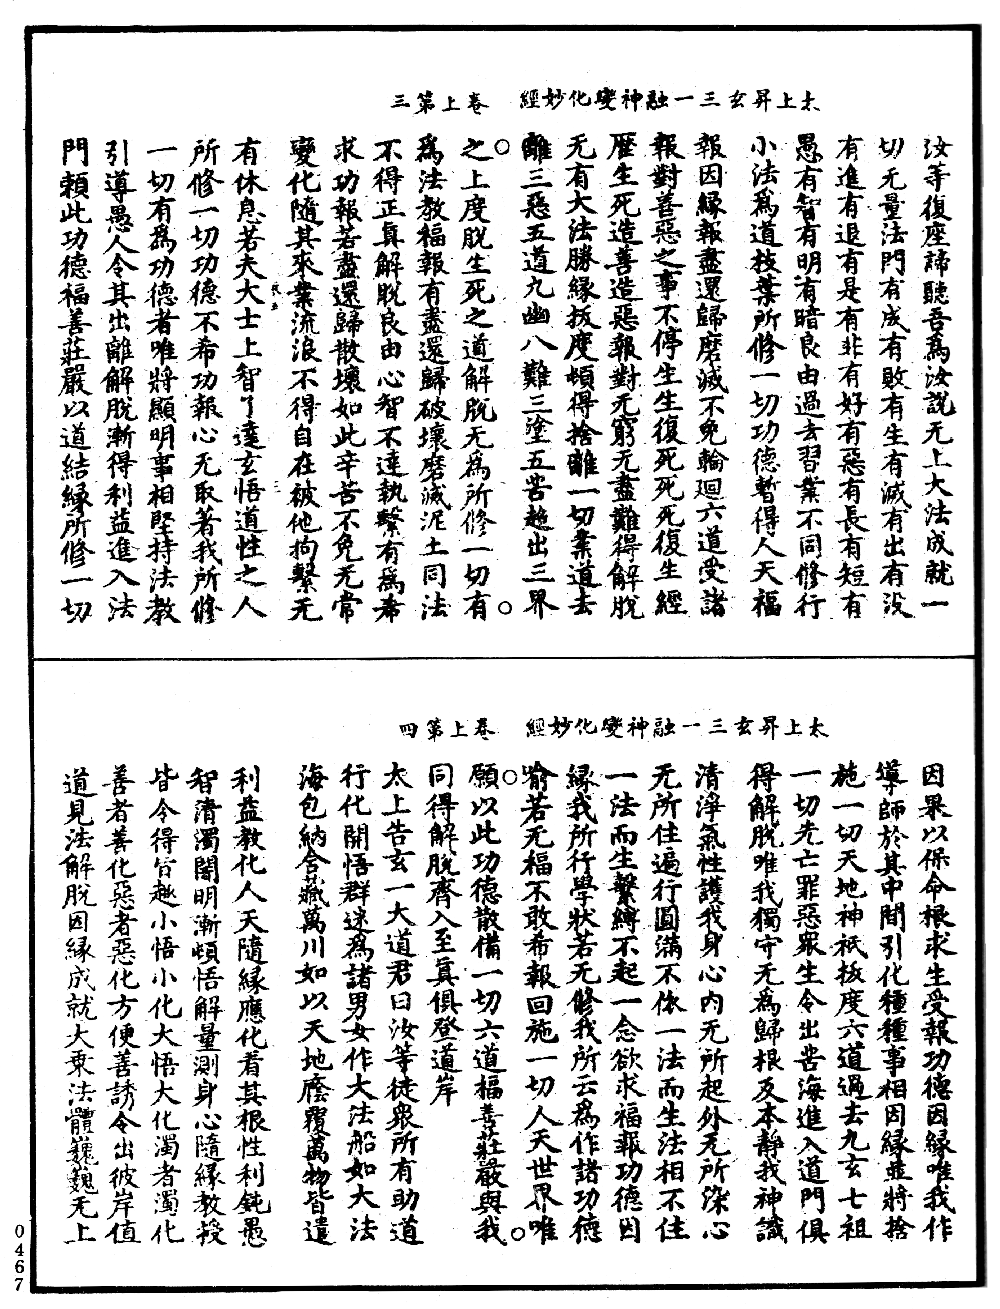 太上昇玄三一融神變化妙經　卷上第三
汝等復座諦聽吾爲汝說无上大法成就一
切无量法門有成有敗有生有滅有出有沒
有進有退有是有非有好有惡有長有短有
愚有智有明有暗良由過去習業不同修行
小法爲道枝葉所修一切功德暫得人天福
報因緣報盡還歸磨滅不免輪廻六道受諸
報對善惡之事不停生生復死死死復生經
歷生死造善造惡報對无窮无盡難得解脫
无有大法勝緣拔度頓得捨離一切業道去
離三惡五道九幽八難三塗五苦越出三界
之上度脫生死之道解脫无爲所修一切有
爲法教福報有盡還歸破壞磨滅泥土同法
不得正真解脫良由心智不達執繫有爲希
求功報若盡還歸散壞如此辛苦不免无常
變化隨其來業流浪不得自在被他拘繫无
有休息若夫大士上智了達玄悟道性之人
所修一切功德不希功報心无取著我所修
一切有爲功德者唯將顯明事相堅持法教
引導愚人令其出離解脫漸得利益進入法
門賴此功德福善莊嚴以道結緣所修一切
太上昇玄三一融神變化妙經　卷上第四
因果以保命根求生受報功德因緣唯我作
導師於其中間引化種種事相因緣並將捨
施一切天地神祇拔度六道過去九玄七祖
一切先亡罪惡眾生令出苦海進入道門俱
得解脫唯我獨守无爲歸根反本靜我神識
清淨氣性護我身心內无所起外无所染心
无所住遍行圓滿不依一法而生法相不住
一法而生繫縛不起一念欲求福報功德因
緣我所行學狀若无修我所云爲作諸功德
喻若无福不敢希報回施一切人天世界唯
願以此功德散備一切六道福善莊嚴與我
同得解脫齊入至真俱登道岸
太上告玄一大道君曰汝等徒眾所有助道
行化開悟群迷爲諸男女作大法船如大法
海包納含藏萬川如以天地廕覆萬物皆遣
利益教化人天隨緣應化看其根性利鈍愚
智清濁闇明漸頓悟解量測身心隨緣教授
皆令得皆趣小悟小化大悟大化濁者濁化
善者善化惡者惡化方便善誘令出彼岸值
道見法解脫因緣成就大乘法體巍巍无上
0467